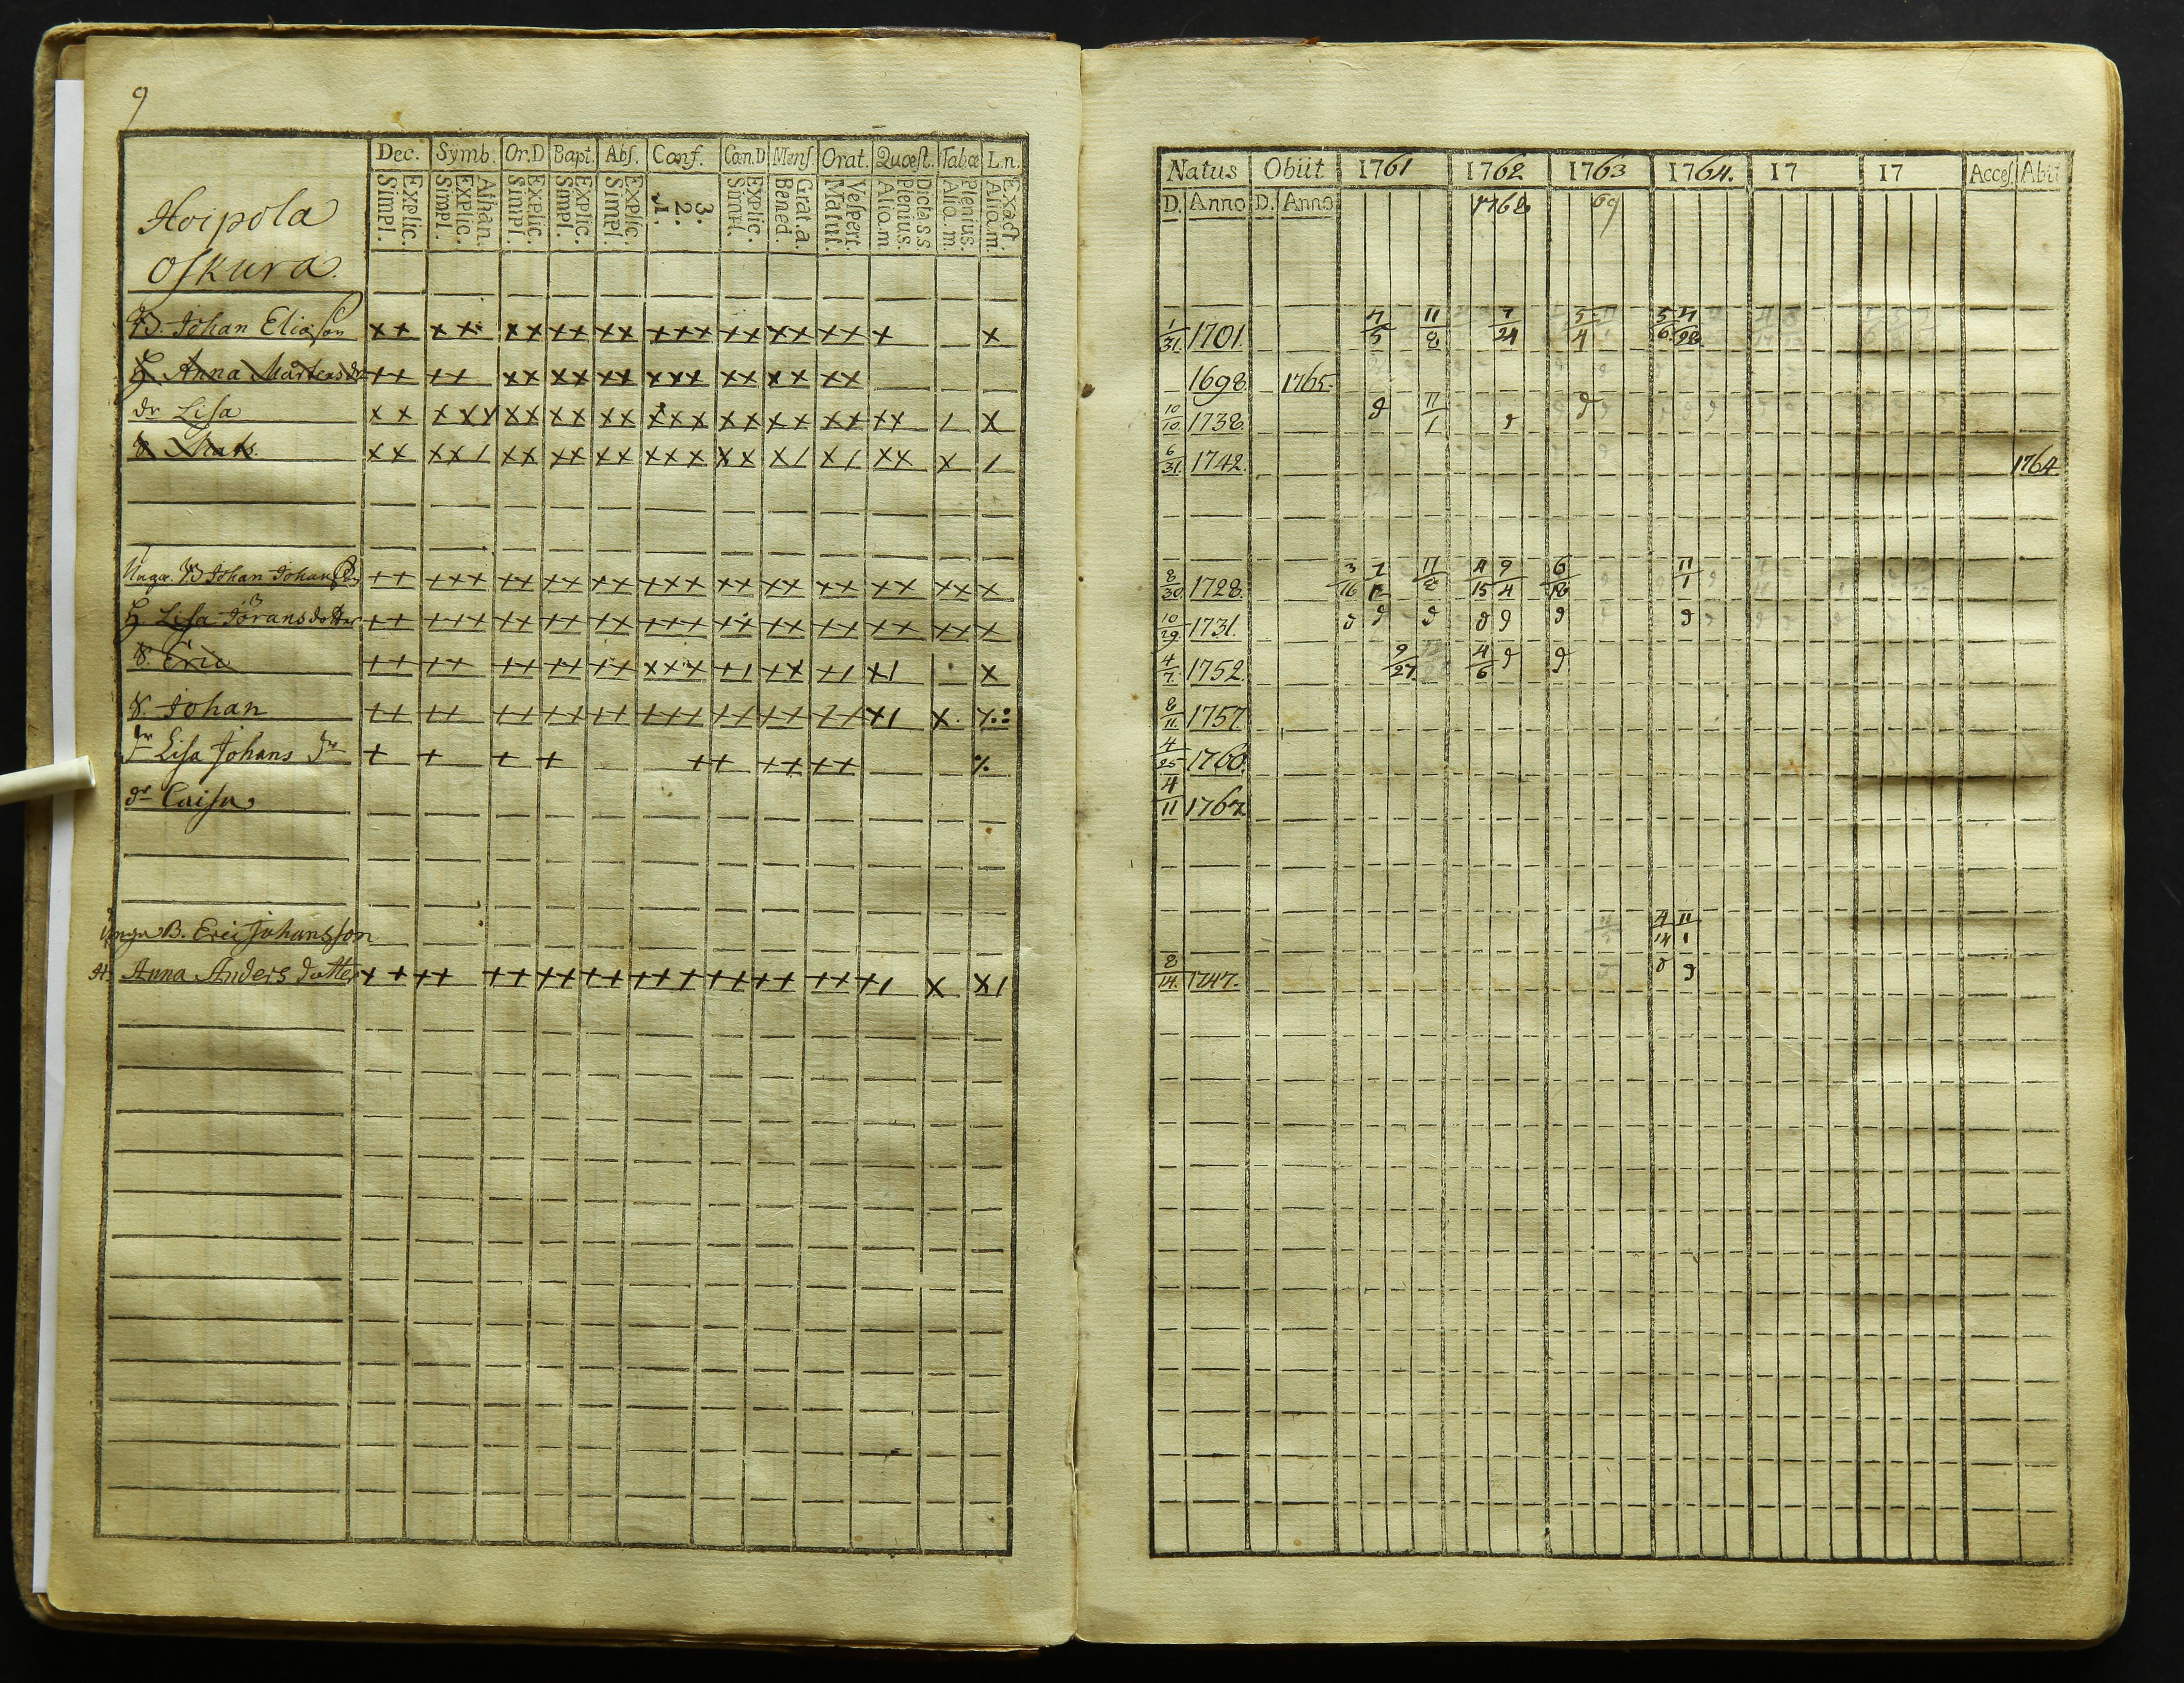 9
Dec. Symb. Or.D Bapt. Abſ. Conf. Cœn.D Menſ. Orat. Quœſt. Tabœ L.n.
Explic. Simpl. Athan. Explic. Simpl. Explic. Simpl. Explic. Simpl. Explic. Simpl. 3. 2. 1. Explic. Simpl. Grat.a. Bened. Veſpert. Matut. Dicta.s.s. Plenius. Alio.m. Plenius. Alio.m. Exact. Alio.m.
Hoipola
Oſkura
B. Johan Eliaſson ×× ×× ×× ×× ×× ××× ×× ×× ×× × ×
H. Anna Mårtensdr ++ ++ ×× ×× ×× ××× ×× ×× ××
dr Liſa ×× ××× ×× ×× ×× ××× ×× ×× ×× ×× / ×
S. Mats ×× ××/ ×× ×× ×× ××× ×× ×/ ×/ ×× × /
Unga. B Johan Johanſson ++ +++ ++ ++ ++ +++ ++ ++ ++ ×× ×× ×
H. Liſa Joransdotter ++ +++ ++ ++ ++ +++ ++ ++ ++ ×× ×× ×
S. Eric ++ ++ ++ ++ ++ ××× +/ ×× +/ ×/ ×
S. Johan ++ ++ ++ ++ ++ +++ ++ ++ ++ ×/ ×.
dr Liſa Johans dr + + + + ++ ++ ++
dr Caiſa
Unga B. Eric Johansſon
H. Anna Anders dotter ++ ++ ++ ++ ++ +++ ++ ++ ++ +/ × ×/
Natus Obiit 1761 1762 1763 1764. 17 17 Acceſ. Abiit
D. Anno D. Anno 1768 69
1/31. 1701. 7/5 11/8 7/24 5/4 5/6 7/28
1698 1765.
10/10 1738. 11/1
6/31. 1742. 1764
8/30 1728. 3/16 11/8 4/15 9/4 6/18 11/1
10/29 1731.
4/7. 1752. 9/27 4/6
8/11. 1757
4/25 1760.
4/11 1767
4/14 11/1
8/14. 1747.